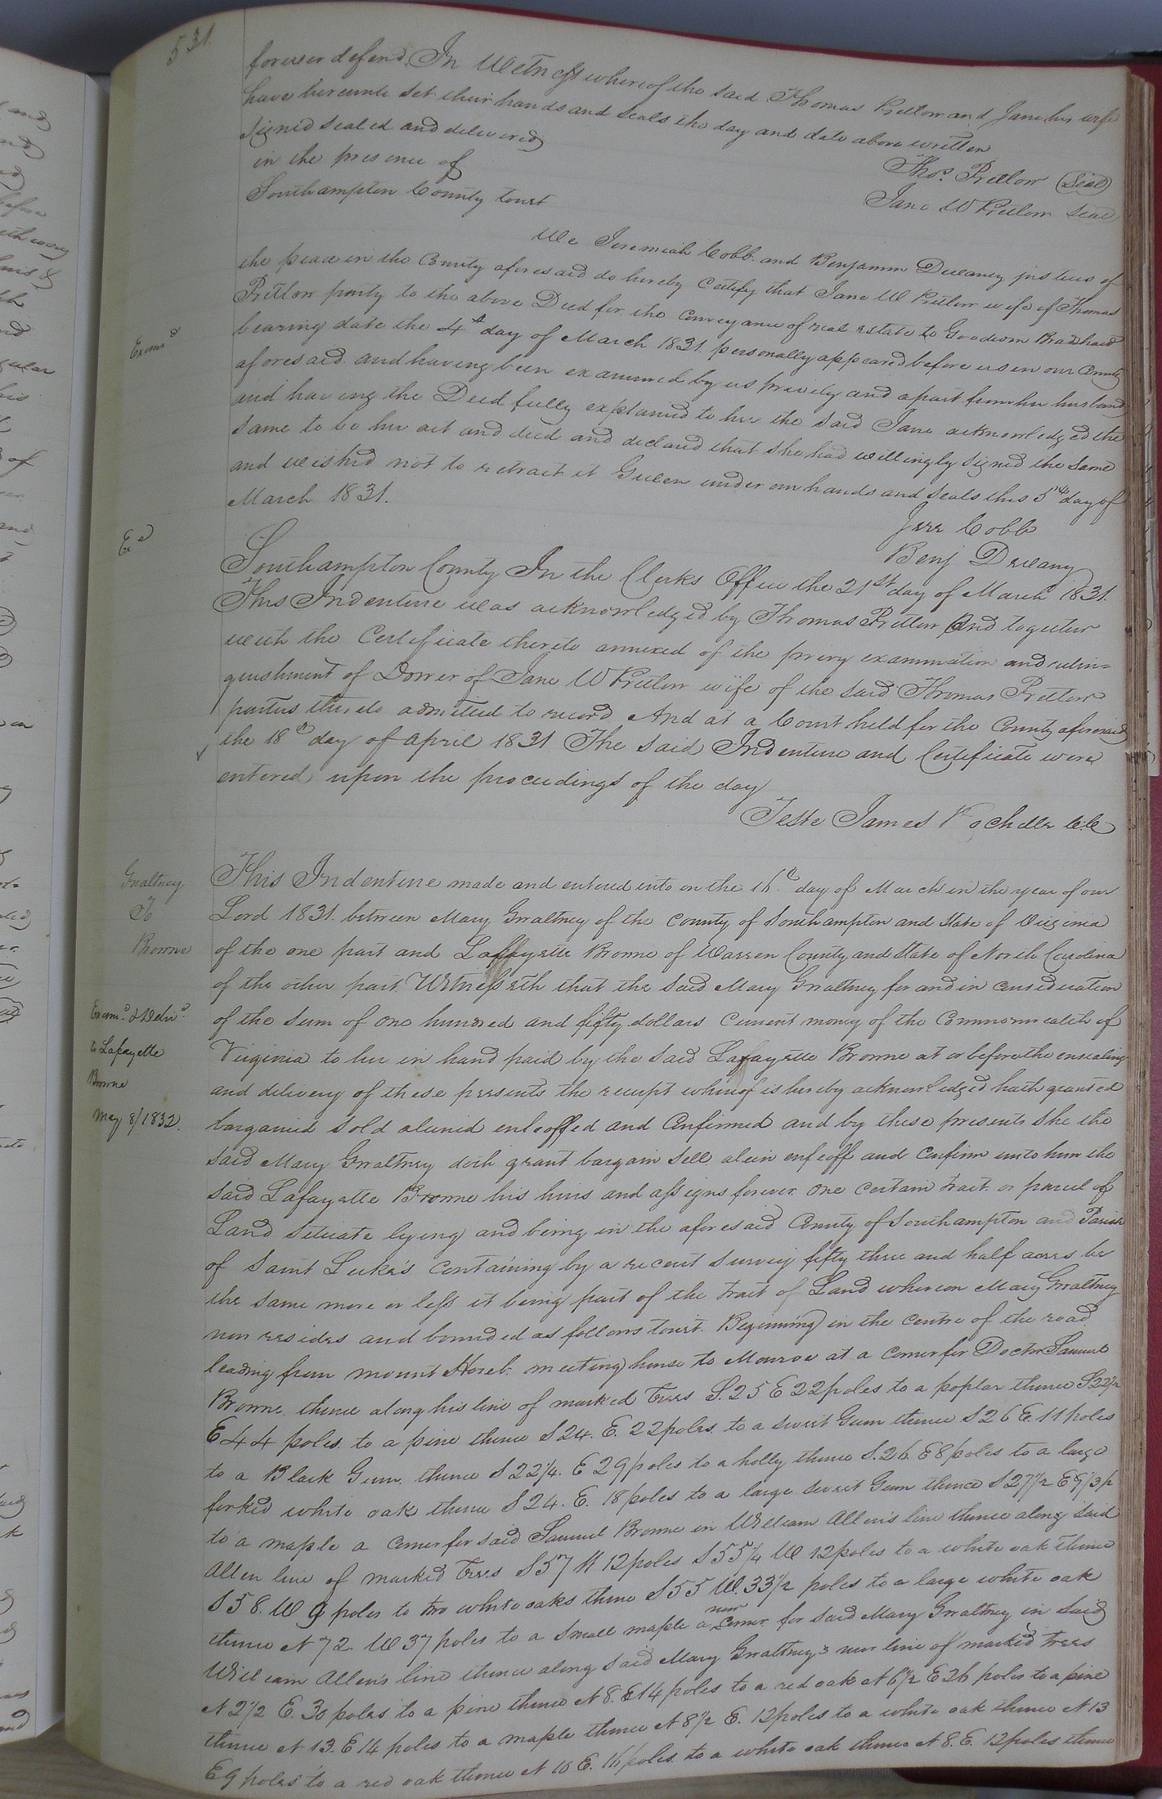 531.
forever defend. In Witness whereof the said Thomas Pretlow and Jane his wife
have hereunto set their hands and seals the day and date above written
Signed sealed and delivered
in the presence of
Southampton County Court
Thos. Pretlow (Seal)
Jane W Pretlow Seal
We Jeremiah Cobb and Benjamin Devany justices of
the peace in the County aforesaid do hereby certify that Jane W Pretlow wife of Thomas
Pretlow party to the above Deed for the conveyance of real estate to Goodwin
Examd
bearing date the 4th day of March 1831 personally appeared before us in our County
aforesaid and having been examined by us privily and apart from her husband
and having the Deed fully explained to her the said Jane acknowledged the
same to be her act and deed and declared that she had willingly signed the same
and wished not to retract it Given under our hands and seals this 5th day of
March 1831.
Jere Cobb
Benj Devany
Exd
Southampton County In the Clerks Office the 21st day of March 1831.
This Indenture was acknowledged by Thomas Pretlow And together
with the Certificate thereto annexed of the privy examination and relin=
quishment of Dower of Jane W Pretlow wife of the said Thomas Pretlow
parties thereto admitted to record And at a Court held for the County aforesaid
the 18th day of April 1831 The said Indenture and Certificate were
entered upon the proceedings of the day
Teste James Rochelle CC
Gwaltney
To
Browne
Examd. & Delivd.
to Lafayette
Browne
May 8/1832.
This Indenture made and entered into on the 16th day of March in the year of our
Lord 1831. between Mary Gwaltney of the county of Southampton and State of Virginia
of the one part and Laffayette Browne of Warren County and State of North Carolina
of the other part Witnesseth that the said Mary Gwaltney for and in consideration
of the sum of one hundred and fifty dollars current money of the Commonwealth of
Virginia to her in hand paid by the said Lafayette Browne at or before the ensealing
and delivery of these presents the receipt whereof is hereby acknowledged hath granted
bargained sold aliened enfeoffed and Confirmed and by these presents she the
said Mary Gwaltney doth grant bargain sell alein enfeoff and confirm unto him the
said Lafayette Browne his heirs and assigns forever one certain tract or parcel of
Land situate lying and being in the aforesaid County of Southampton and Parish
of Saint Luke's containing by a recent survey fifty three and half acres be
the same more or less it being part of the tract of Land whereon Mary Gwaltney
now resides and bounded as follows towit. Beginning in the centre of the road
leading from mount Horeb meeting house to Monroe at a corner for Doctor Samuel
Browne thence along his line of marked trees S. 25 E 22 poles to a poplar thence S 22½
E 44 poles. to a pine thence S 24. E. 22 poles. to a sweet Gum thence S 26 E. 11 poles
to a Black Gum. thence S 22¼. E 29 poles to a holly thence S. 26. E 8 poles to a large
forked white oak thence S 24. E. 18 poles to a large sweet Gum thence S 27½ E 9⅓ p
to a maple a corner for said Samuel Browne in William Allen's line thence along said
Allen line of marked trees S 57 W 12 poles S 55¼ W 12 poles to a white oak thence
S 58. W 9 poles to two white oaks thence S 55 W. 33½ poles to a large white oak
thence N 72. W 37 poles to a small maple a new corner for said Mary Gwaltney in said
William Allen's line thence along said Mary Gwaltney's new line of marked trees
N 2½ E. 30 poles to a pine thence N 8. E 14 poles to a red oak N 6½ E 26 poles to a pine
thence N 13. E 14 poles to a maple thence N 8½ E. 12 poles to a white oak thence N 13
E 9 poles to a red oak thence N 10 E. 16 poles to a white oak thence N 8. E. 12 poles thence